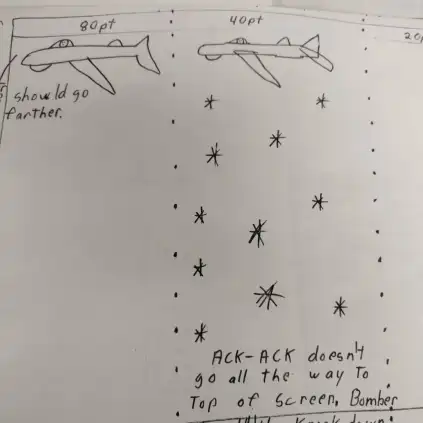 80pt
40pt
should go
farther.
ACK-ACK doesn't
go all the way to
Top of screen, Bomber